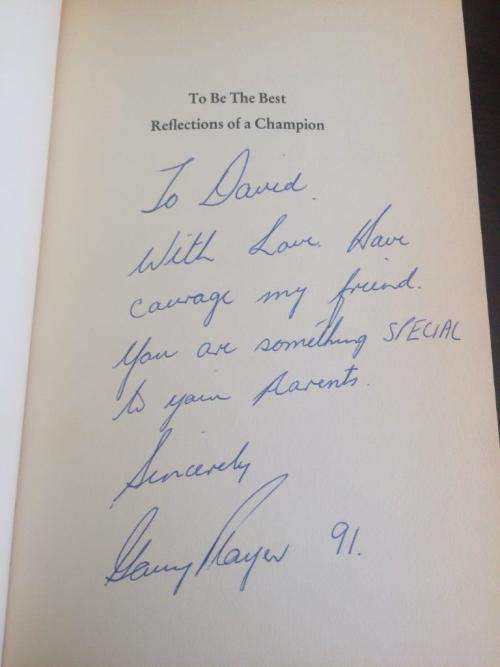 To Be The Best
Reflections of a Champion
To David.
With Love. Have
courage my friend.
You are something SPECIAL
to your parents.
Sincerely
Gary Player 91.